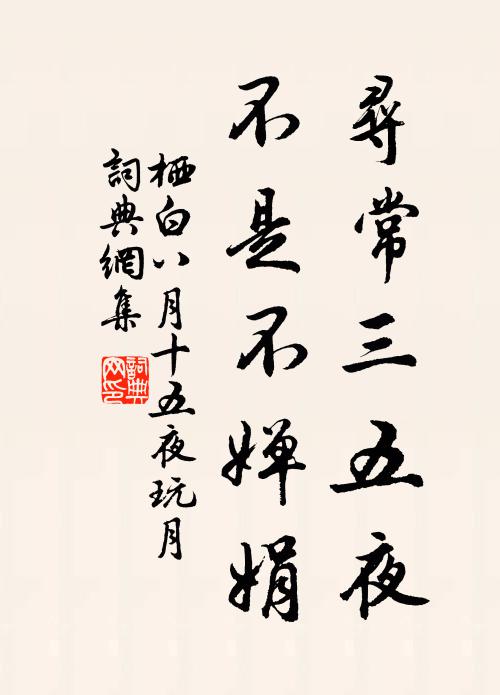 尋常三五夜
不是不嬋娟
栖白八月十五夜玩月
詞典網集
詞典
网印